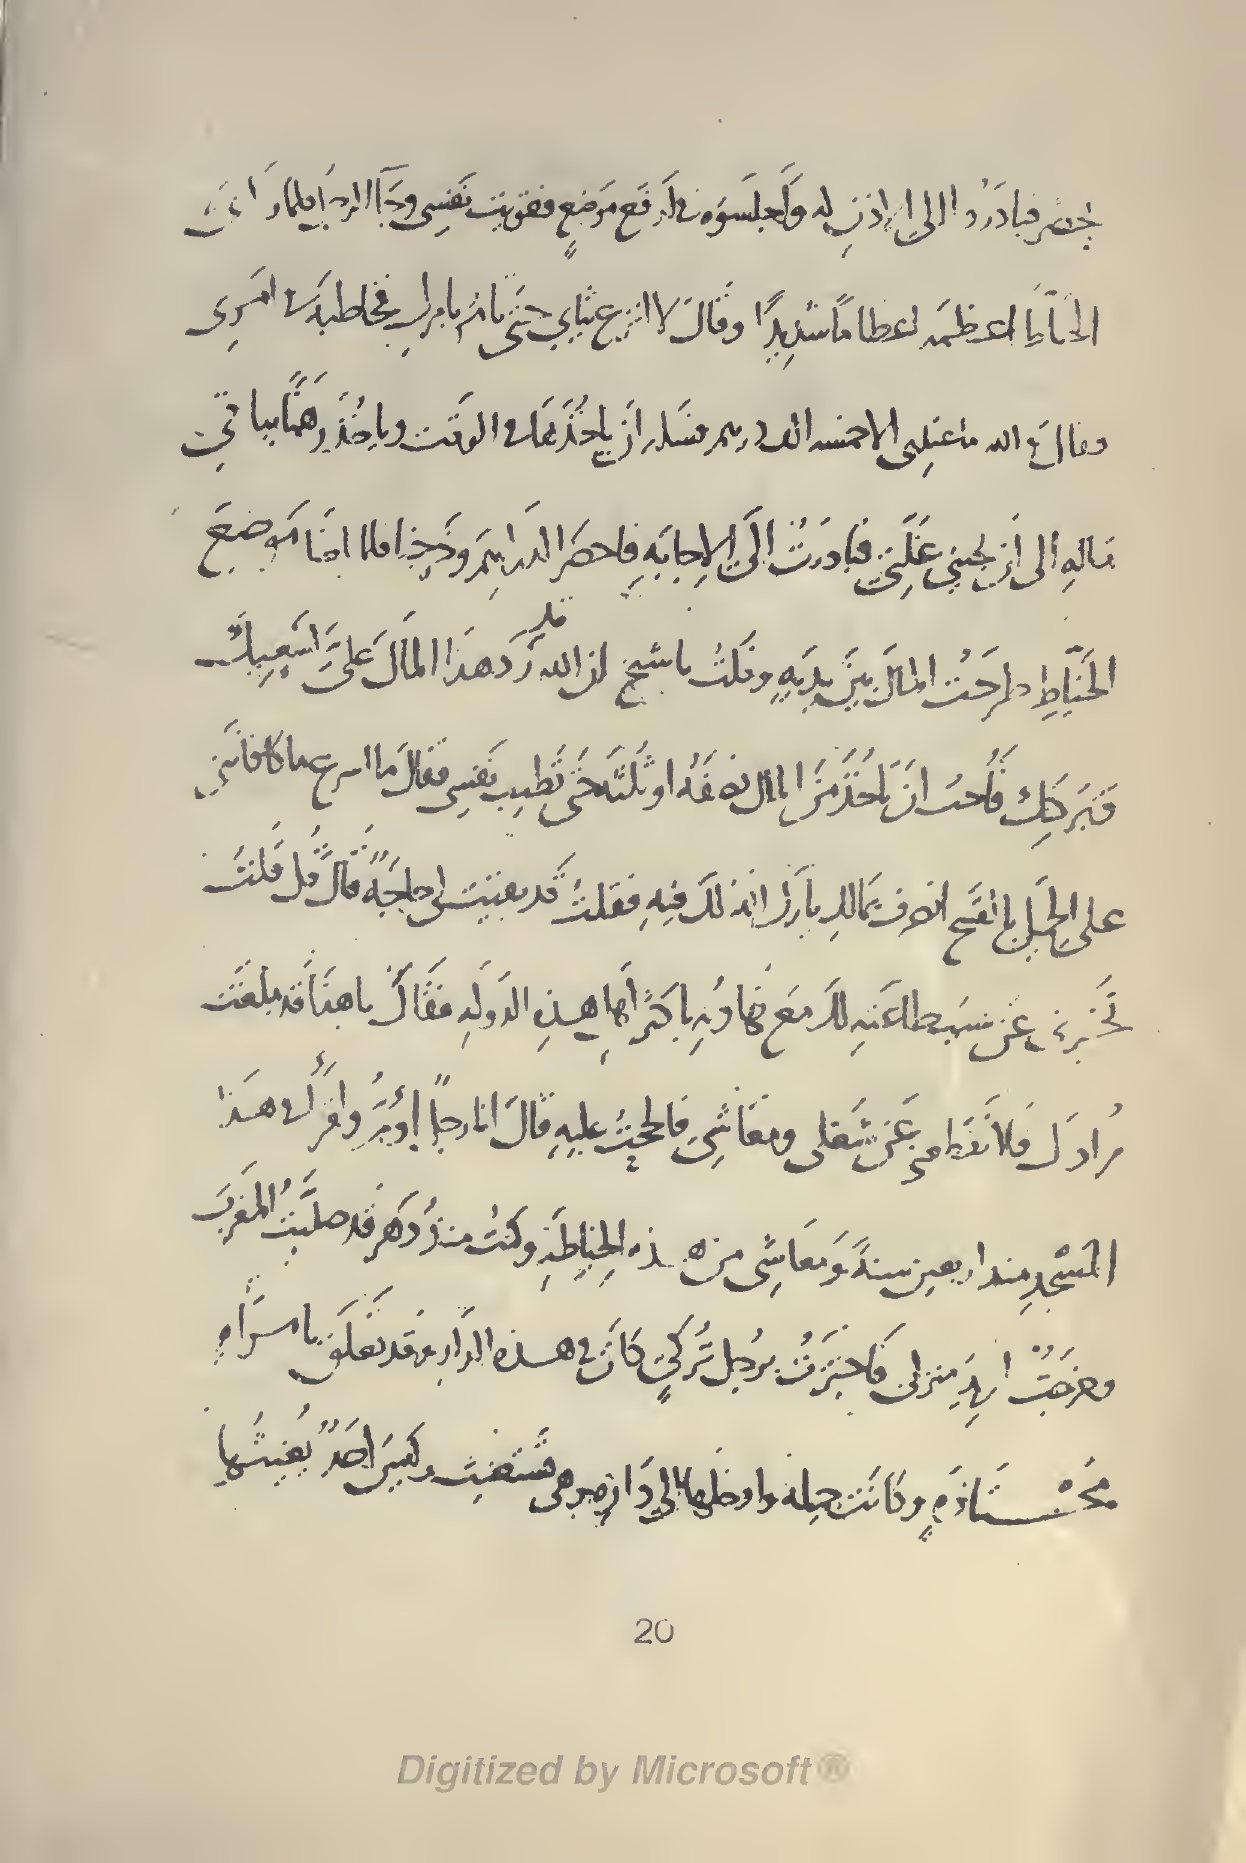 يحضر فبادروا الى الاذن له واجلسوه في ارفع موضع فقويت نفسي وجاء الرجل فلما راى
الخياط اعظمه اعظاما شديدا وقال لا انزع ثيابي حتى تامر بامرك فخاطبه في امري
وقال والله ما عندي الا خمسة الف درهم فسله ان ياخذها في الوقت وياخذ رهنا بباقي
ماله الى ان تجيني غلتي فبادرت الى الاجابة فاحضر الدراهم فلما موضع
الخياط طرحت المال بين يديه وقلت يا شيخ ان الله قد رد هذا المال علي بسببك
فاحب ان تاخذ من المال نصفه او ثلثه حتى تطيب نفسي فقال ما اسرع ما كافاتني
على الجميل بالقبيح انصرف بمالك بارك الله لك فيه فقلت قد بقيت لي حاجة قال قل قلت
تخبرني عن سبب طاعته لك مع تهاونه باكثر اهل هذه الدولة فقال يا هذا قد بلغت
مرادك فلا تقطعني عن شغلي ومعاشي فالححت عليه قال انا رجل اؤم واقرأ في هذا
المسجد منذ اربعين سنة ومعاشي من هذه الخياطة وكنت منذ دهر قد صليت المغرب
وخرجت اريد منزلي فاجتزت برجل تركي كان في هذه الدار وقد تعلق بامرأة
مجتازة وكانت جميلة وادخلها الى داره وهي تستغيث وليس احد يغيثها
20
Digitized by Microsoft®